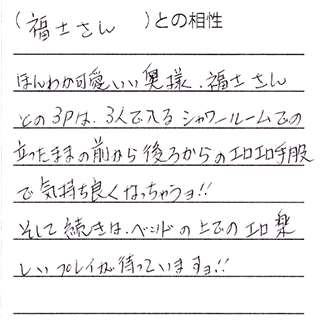 (福士さん)との相性
ほんわか可愛いい奥様、福士さん
との3Pは、3人で入るシャワールームでの
立ったままの前から後ろからのエロエロ手股
で気持ち良くなっちゃうョ!!
そして続きは、ベッドの上でのエロ楽
しいプレイが待っていますョ!!